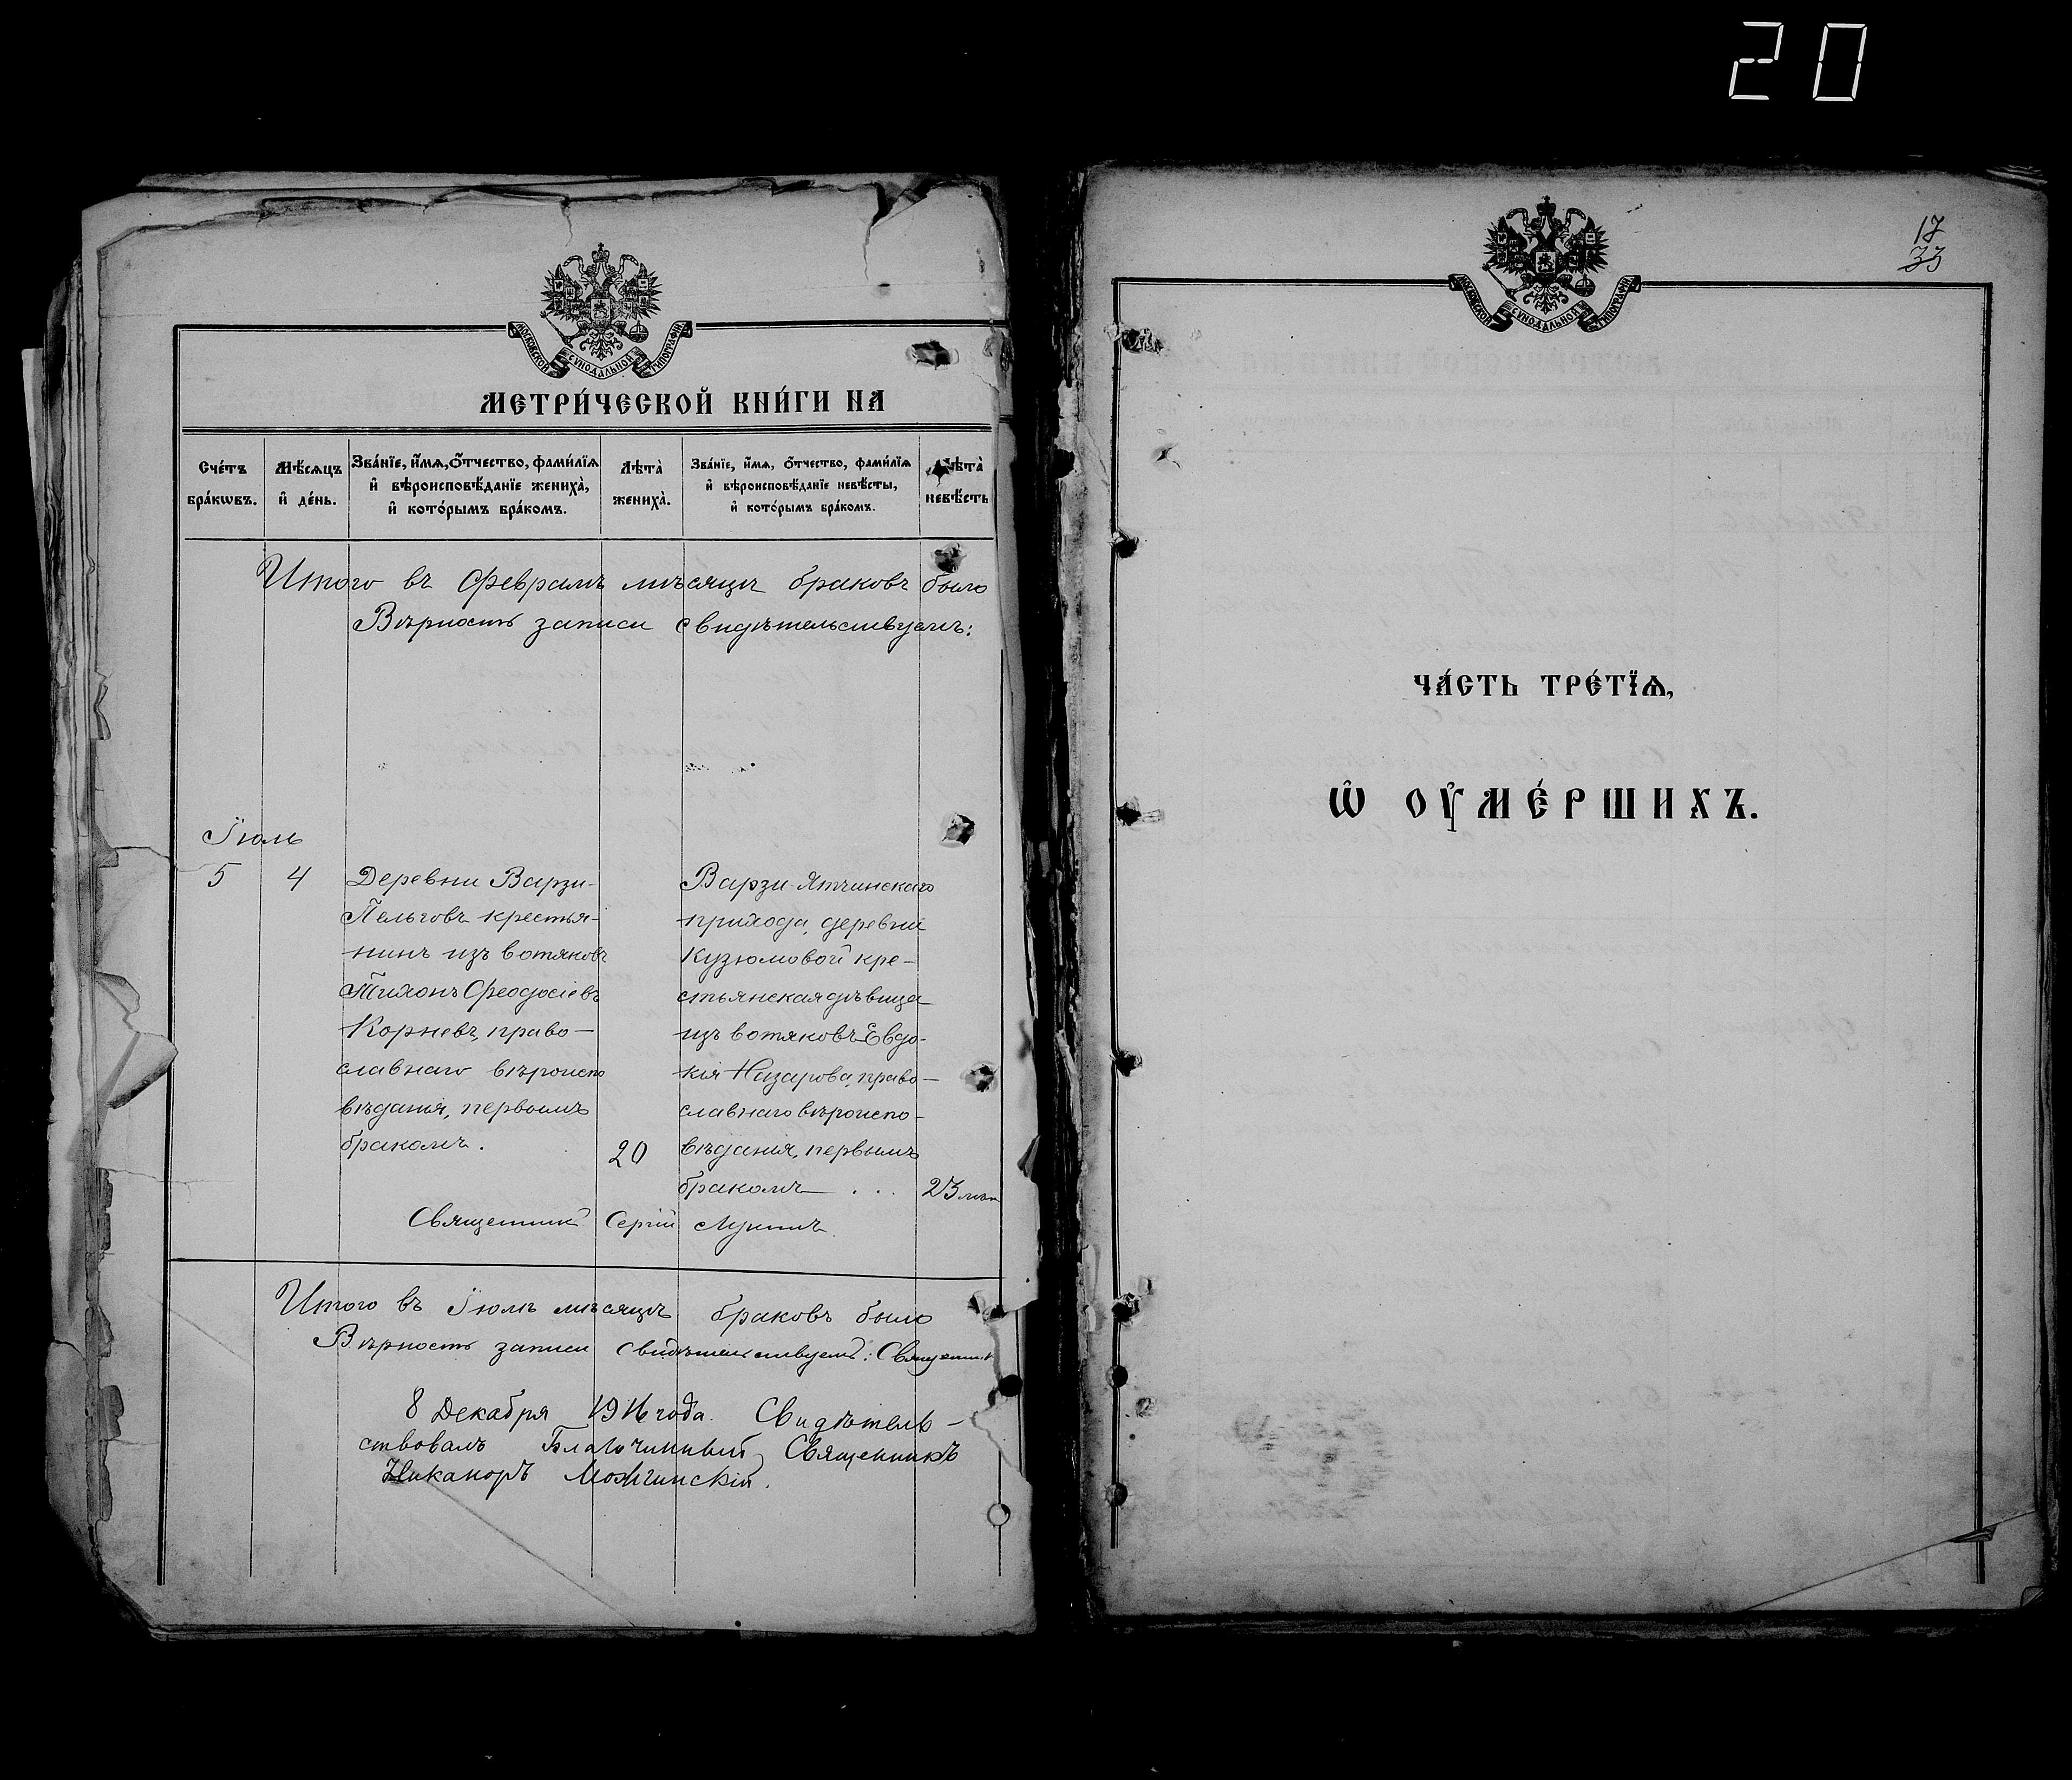 20
МОСКОВСКОЙ СѴНОДАЛЬНОЙ ТИПОГРАФІИ
МЕТРИ́ЧЕСКОЙ КНИ́ГИ НА
Сче́тъ бра́кѡвъ.
Мѣ́сяцъ и҆ де́нь.
Зва́нїе, и҆́мѧ, ѻ҆́тчество, фами́лїѧ и҆ вѣроисповѣ́данїе жениха̀, и҆ кото́рымъ бра́комъ.
Лѣта̀ жениха̀.
Зва́нїе, и҆́мѧ, ѻ҆́тчество, фами́лїѧ и҆ вѣроисповѣ́данїе невѣ́сты, и҆ кото́рымъ бра́комъ.
Лѣта̀ невѣ́сты
Итого въ Февралѣ мѣсяцѣ браковъ было
Вѣрность записи свидѣтельствуемъ:
Іюль
5
4
Деревни Варзи-
Пельговъ крестья-
нинъ изъ вотяковъ
Тихонъ Феодосіевъ
Корневъ, право-
славнаго вѣроиспо
вѣданія, первымъ
бракомъ.
20
Варзи-Ятчинскаго
прихода, деревни
Кузюмовой кре-
стьянская дѣвица
изъ вотяковъ Евдо-
кія Назарова, право-
славнаго вѣроиспо-
вѣданія, первымъ
бракомъ . . .
23 лѣт
Священник Сергій Лупинъ
Итого въ Іюлѣ мѣсяцѣ браковъ было
Вѣрность записи свидѣтельствуемъ: Священник
8 Декабря 1916 года. Свидѣтель-
ствовалъ Благочинный, Священникъ
Никаноръ Можгинскій.
МОСКОВСКОЙ СѴНОДАЛЬНОЙ ТИПОГРАФІИ
17
33
ЧА́СТЬ ТРЕ́ТЇѦ,
Ѡ҆ ОУ҆МЕ́РШИХЪ.